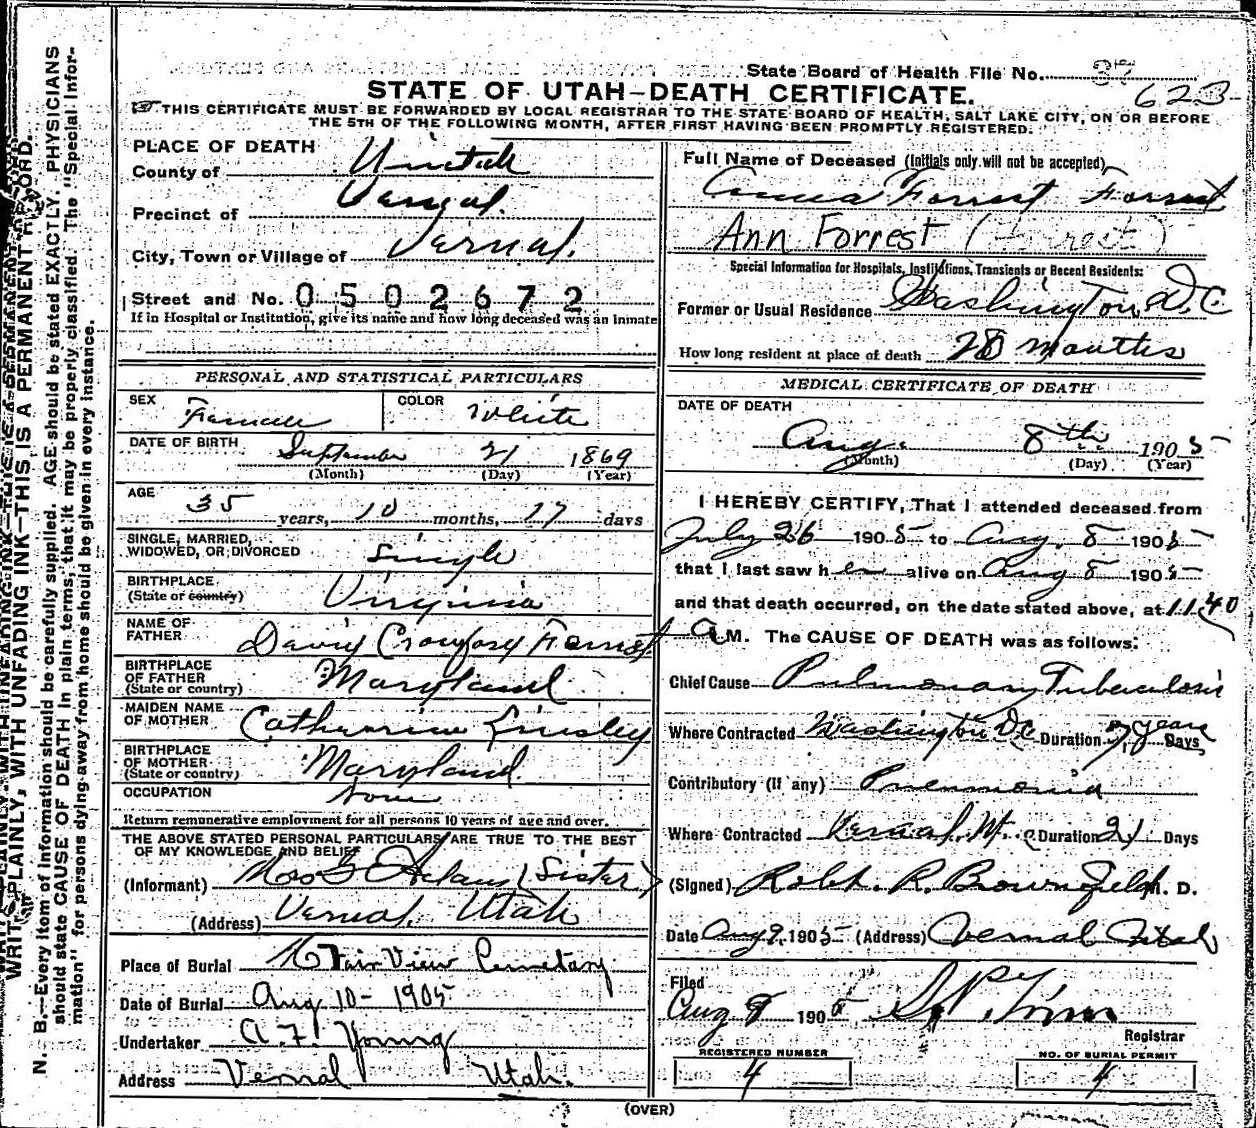 State Board of Health File No. 37
623
STATE OF UTAH—DEATH CERTIFICATE.
THIS CERTIFICATE MUST BE FORWARDED BY LOCAL REGISTRAR TO THE STATE BOARD OF HEALTH, SALT LAKE CITY, ON OR BEFORE
THE 5TH OF THE FOLLOWING MONTH, AFTER FIRST HAVING BEEN PROMPTLY REGISTERED.
PLACE OF DEATH
County of Uintah
Precinct of Vernal.
City, Town or Village of Vernal.
Street and No. 0502672
If in Hospital or Institution, give its name and how long deceased was an inmate
PERSONAL AND STATISTICAL PARTICULARS
SEX Female COLOR White
DATE OF BIRTH September 21 1869
(Month) (Day) (Year)
AGE 35 years, 10 months, 17 days
SINGLE, MARRIED,
WIDOWED, OR DIVORCED single
BIRTHPLACE
(State or country) Virginia
NAME OF
FATHER Forrest
BIRTHPLACE
OF FATHER
(State or country) Maryland
MAIDEN NAME
OF MOTHER Catherine
BIRTHPLACE
OF MOTHER
(State or country) Maryland.
OCCUPATION None
Return remunerative employment for all persons 10 years of age and over.
THE ABOVE STATED PERSONAL PARTICULARS ARE TRUE TO THE BEST
OF MY KNOWLEDGE AND BELIEF
(Informant) Mrs Adams (Sister)
(Address) Vernal. Utah
Place of Burial Fair View Cemetary
Date of Burial Aug 10 - 1905
Undertaker A. F. Young
Address Vernal Utah.
Full Name of Deceased (Initials only will not be accepted)
Forrest Forrest
Ann Forrest (Forrest)
Special Information for Hospitals, Institutions, Transients or Recent Residents:
Former or Usual Residence Washington D C
How long resident at place of death 28 months
MEDICAL CERTIFICATE OF DEATH
DATE OF DEATH
Aug. 8th 1905
(Month) (Day) (Year)
I HEREBY CERTIFY, That I attended deceased from
July 26 1905 to Aug. 8 1905
that I last saw her alive on Aug 8 1905
and that death occurred, on the date stated above, at 11.40
A M. The CAUSE OF DEATH was as follows:
Chief Cause Pulmonary Tuberculosis
Where Contracted Washington DC Duration years Days
Contributory (if any) Pneumonia
Where Contracted Vernal, Ut. Duration 21 Days
(Signed) Robt. R. Brownfield M. D.
Date Aug 9, 1905 (Address) Vernal Utah
Filed
Aug 8 1905
Registrar
REGISTERED NUMBER
4
NO. OF BURIAL PERMIT
4
(OVER)
WRITE PLAINLY, WITH UNFADING INK—THIS IS A PERMANENT RECORD.
N. B.—Every item of information should be carefully supplied. AGE should be stated EXACTLY. PHYSICIANS
should state CAUSE OF DEATH in plain terms, that it may be properly classified. The "Special Infor-
mation" for persons dying away from home should be given in every instance.